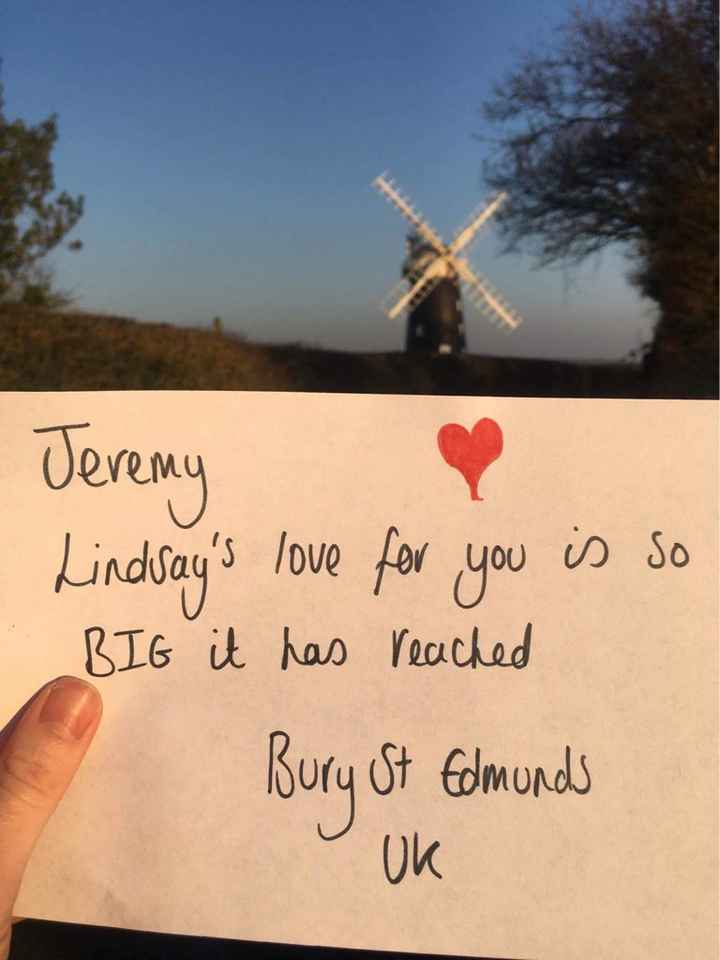 Jeremy
Lindsay's love for you is so
BIG it has reached
Bury St Edmunds
UK